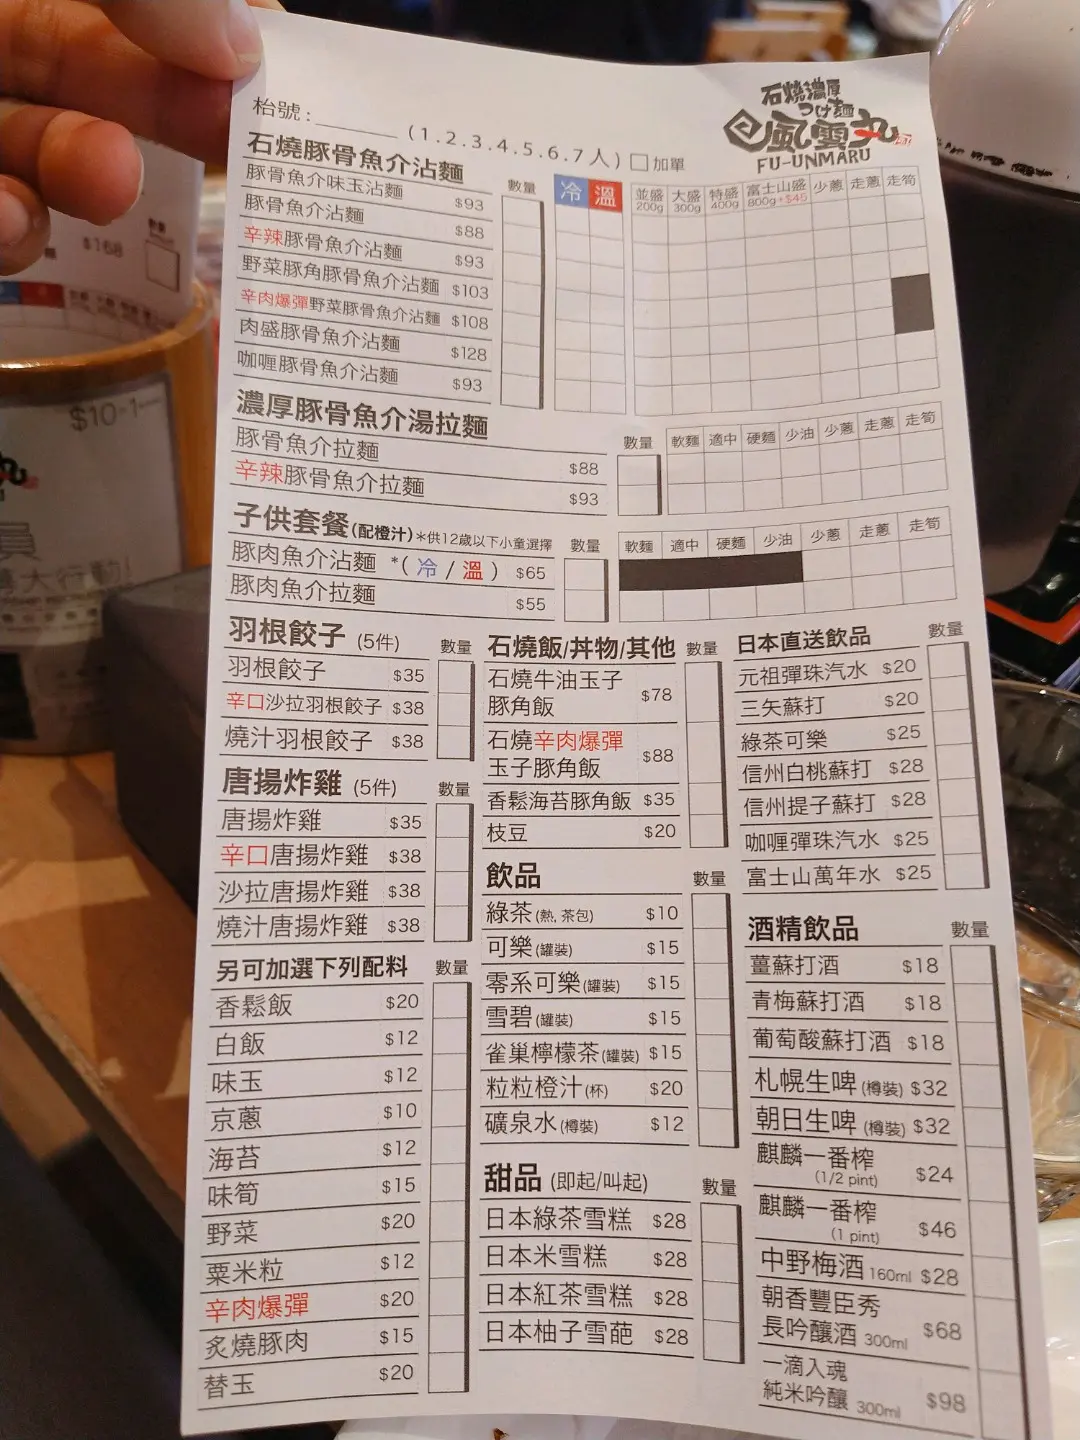 石燒濃厚
つけ麵
風雲丸
FU-UNMARU
枱號:
(1.2.3.4.5.6.7人) 加單
石燒豚骨魚介沾麵 數量 冷 溫 並盛 200g 大盛 300g 特盛 400g 富士山盛 800g+$45 少蔥 走蔥 走筍
豚骨魚介味玉沾麵 $93
豚骨魚介沾麵 $88
辛辣豚骨魚介沾麵 $93
野菜豚角豚骨魚介沾麵 $103
辛肉爆彈野菜豚骨魚介沾麵 $108
肉盛豚骨魚介沾麵 $128
咖喱豚骨魚介沾麵 $93
濃厚豚骨魚介湯拉麵 數量 軟麵 適中 硬麵 少油 少蔥 走蔥 走筍
豚骨魚介拉麵 $88
辛辣豚骨魚介拉麵 $93
子供套餐(配橙汁)*供12歲以下小童選擇 數量 軟麵 適中 硬麵 少油 少蔥 走蔥 走筍
豚肉魚介沾麵 *(冷/溫) $65
豚肉魚介拉麵 $55
羽根餃子 (5件) 數量
羽根餃子 $35
辛口沙拉羽根餃子 $38
燒汁羽根餃子 $38
唐揚炸雞 (5件) 數量
唐揚炸雞 $35
辛口唐揚炸雞 $38
沙拉唐揚炸雞 $38
燒汁唐揚炸雞 $38
另可加選下列配料 數量
香鬆飯 $20
白飯 $12
味玉 $12
京蔥 $10
海苔 $12
味筍 $15
野菜 $20
粟米粒 $12
辛肉爆彈 $20
炙燒豚肉 $15
替玉 $20
石燒飯/丼物/其他 數量
石燒牛油玉子
豚角飯 $78
石燒辛肉爆彈
玉子豚角飯 $88
香鬆海苔豚角飯 $35
枝豆 $20
飲品 數量
綠茶(熱, 茶包) $10
可樂(罐裝) $15
零系可樂(罐裝) $15
雪碧(罐裝) $15
雀巢檸檬茶(罐裝) $15
粒粒橙汁(杯) $20
礦泉水(樽裝) $12
甜品 (即起/叫起) 數量
日本綠茶雪糕 $28
日本米雪糕 $28
日本紅茶雪糕 $28
日本柚子雪葩 $28
日本直送飲品 數量
元祖彈珠汽水 $20
三矢蘇打 $20
綠茶可樂 $25
信州白桃蘇打 $28
信州提子蘇打 $28
咖喱彈珠汽水 $25
富士山萬年水 $25
酒精飲品 數量
薑蘇打酒 $18
青梅蘇打酒 $18
葡萄酸蘇打酒 $18
札幌生啤(樽裝) $32
朝日生啤(樽裝) $32
麒麟一番榨
(1/2 pint) $24
麒麟一番榨
(1 pint) $46
中野梅酒 160ml $28
朝香豐臣秀
長吟釀酒 300ml $68
一滴入魂
純米吟釀 300ml $98
$168
$10
大行動!